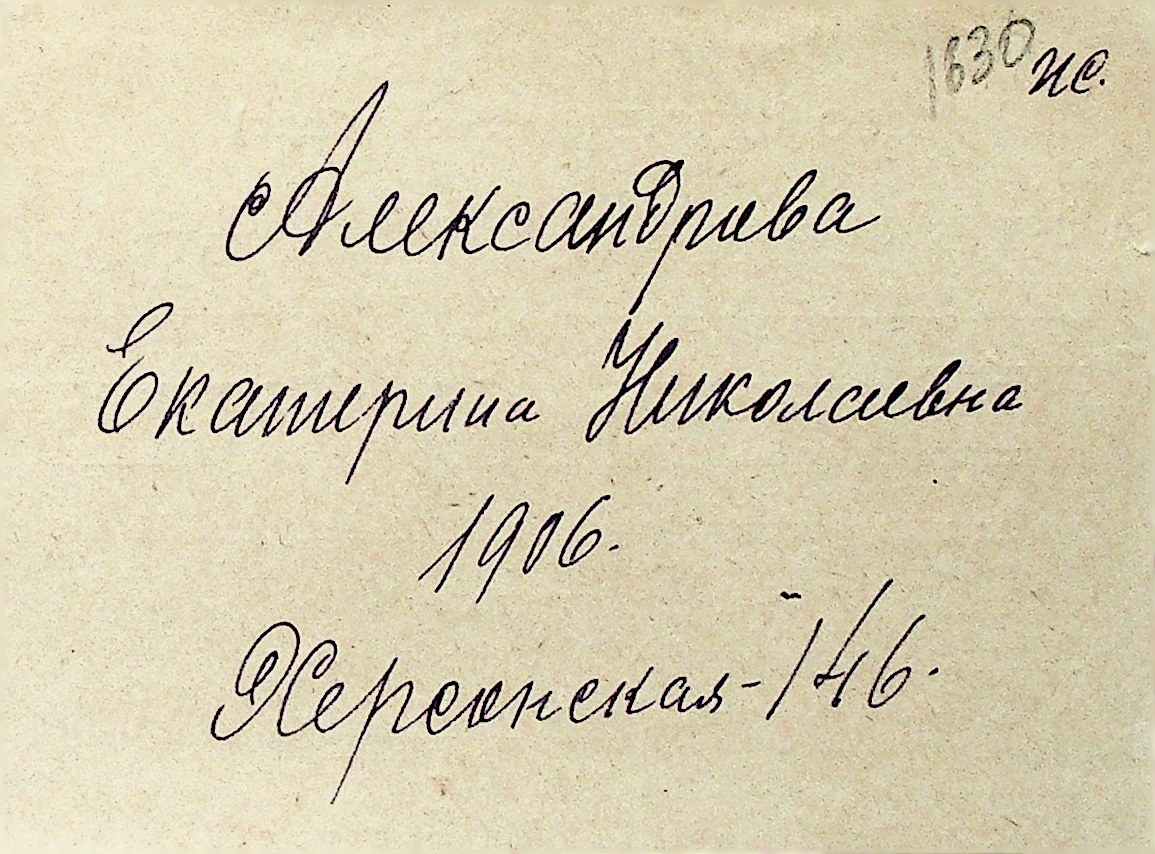 1630 ис.
Александрова
Екатерина Николаевна
1906.
Херсонская - 146.